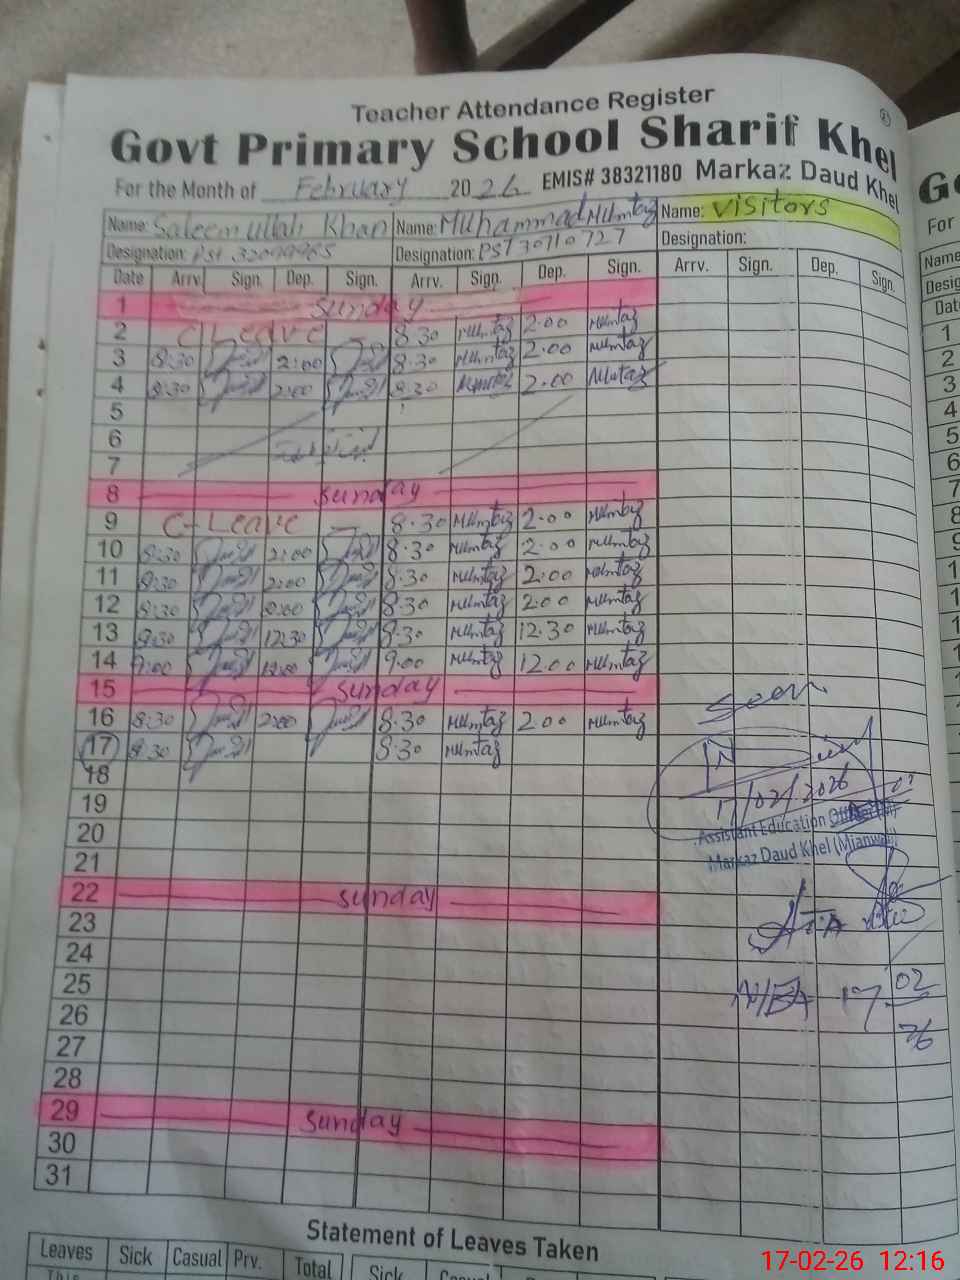 Teacher Attendance Register
Govt Primary School Sharif Khel
For the Month of February 2026 EMIS# 38321180 Markaz Daud Khel
Name: Saleemullah Khan Name: Muhammad Mumtaz Name: Visitors
Designation: PST 32099985 Designation: PST 30710727 Designation:
Date Arrv. Sign. Dep. Sign. Arrv. Sign. Dep. Sign. Arrv. Sign. Dep. Sign.
1 Sunday
2 C Leave 8.30 Mumtaz 2.00 Mumtaz
3 8:30 2:00 8.30 Mumtaz 2.00 Mumtaz
4 8:30 2:00 8.30 Mumtaz 2.00 Mumtaz
5
6
7
8 Sunday
9 C-Leave 8.30 Mumtaz 2.00 Mumtaz
10 8:30 2:00 8.30 Mumtaz 2.00 Mumtaz
11 8:30 2:00 8.30 Mumtaz 2:00 Mumtaz
12 8:30 2:00 8.30 Mumtaz 2.00 Mumtaz
13 8:30 12:30 8.30 Mumtaz 12.30 Mumtaz
14 9:00 12:00 9.00 Mumtaz 12.00 Mumtaz
15 Sunday
16 8:30 2:00 8.30 Mumtaz 2.00 Mumtaz
17 8:30 8.30 Mumtaz
Seen
18
19 17/02/2026
20 Assistant Education
21 Markaz Daud Khel (Mianwali)
22 Sunday
23
24
25 17 02
26 26
27
28
29 Sunday
30
31
Statement of Leaves Taken
Leaves Sick Casual Prv. Total Sick
This
Name
Date
1
2
3
4
5
6
7
8
9
17-02-26 12:16